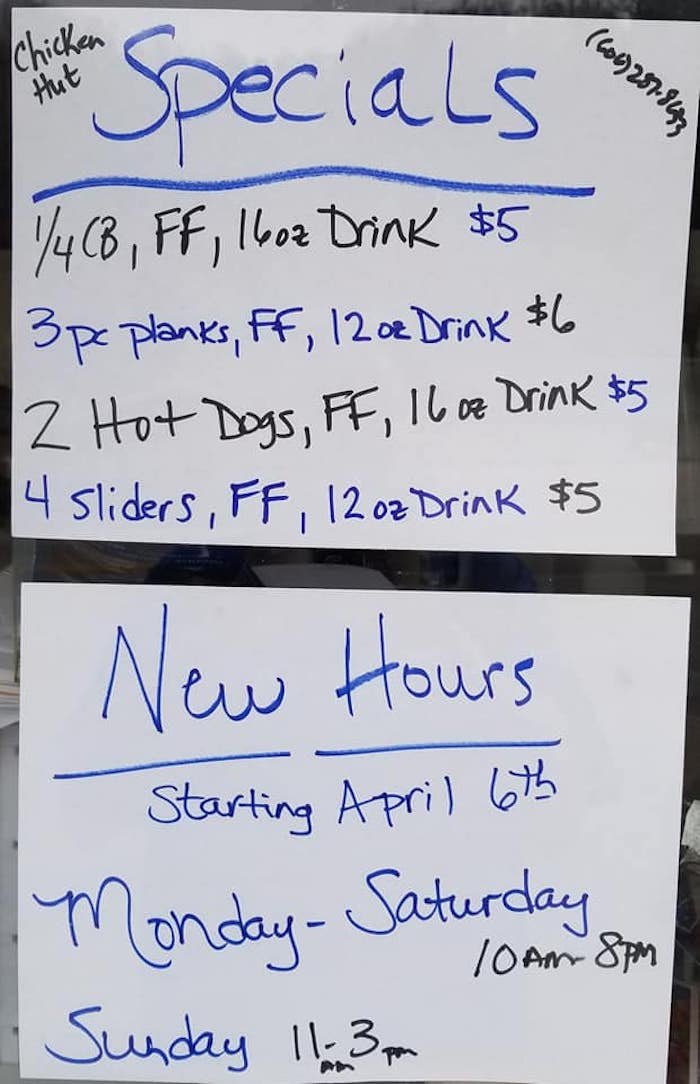 Chicken
Hut
Specials
1/4 CB, FF, 16oz Drink $5
3 pc planks, FF, 12 oz Drink $6
2 Hot Dogs, FF, 16 oz Drink $5
4 sliders, FF, 12 oz Drink $5
New Hours
Starting April 6th
Monday - Saturday
10AM - 8PM
Sunday 11am - 3pm